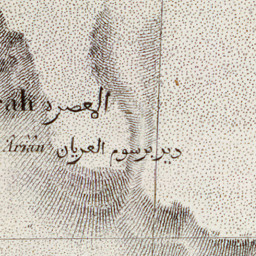 rah المعصره
Ariân دير برسوم العريان